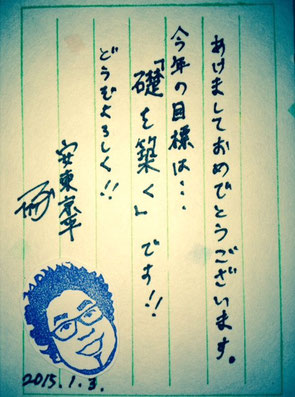 あけましておめでとうございます。
今年の目標は…
『礎を築く』です!!
どうぞよろしく!!
安東京平
2015.1.3.